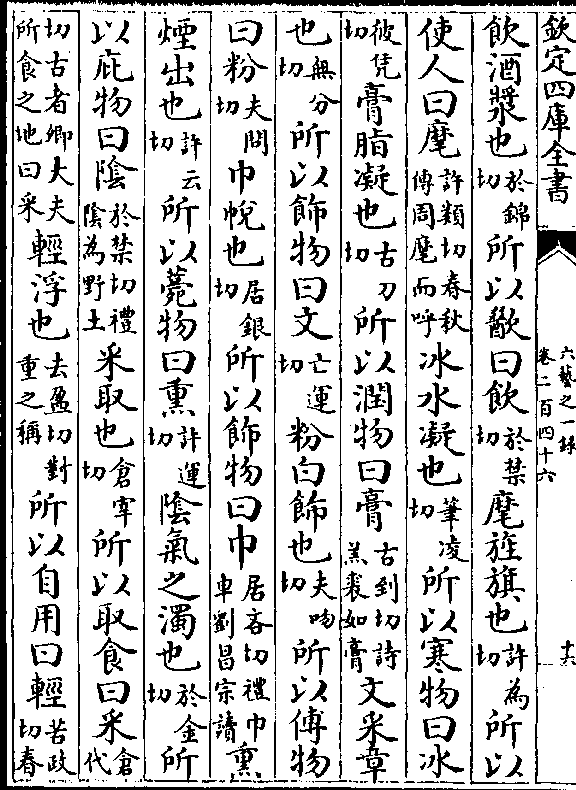 欽定四庫全書
六藝之一録
卷二百四十六
十六
飲酒漿也於錦切所以歠曰飲於禁切麾旌旗也許為切所以
使人曰麾許類切春秋傳周麾而呼冰水凝也筆凌切所以寒物曰冰
彼凭切膏脂凝也古刀切所以潤物曰膏古到切詩羔裘如膏文采章
也無分切所以飾物曰文亡運切粉白飾也夫吻切所以傅物
曰粉夫問切巾帨也居銀切所以飾物曰巾居吝切禮巾車劉昌宗讀熏
煙出也許云切所以薨物曰熏許運切陰氣之濁也於金切所
以庇物曰陰於禁切禮陰為野土采取也倉宰切所以取食曰采倉代
切古者卿大夫所食之地曰采輕浮也去盈切對重之稱所以自用曰輕苦政切春